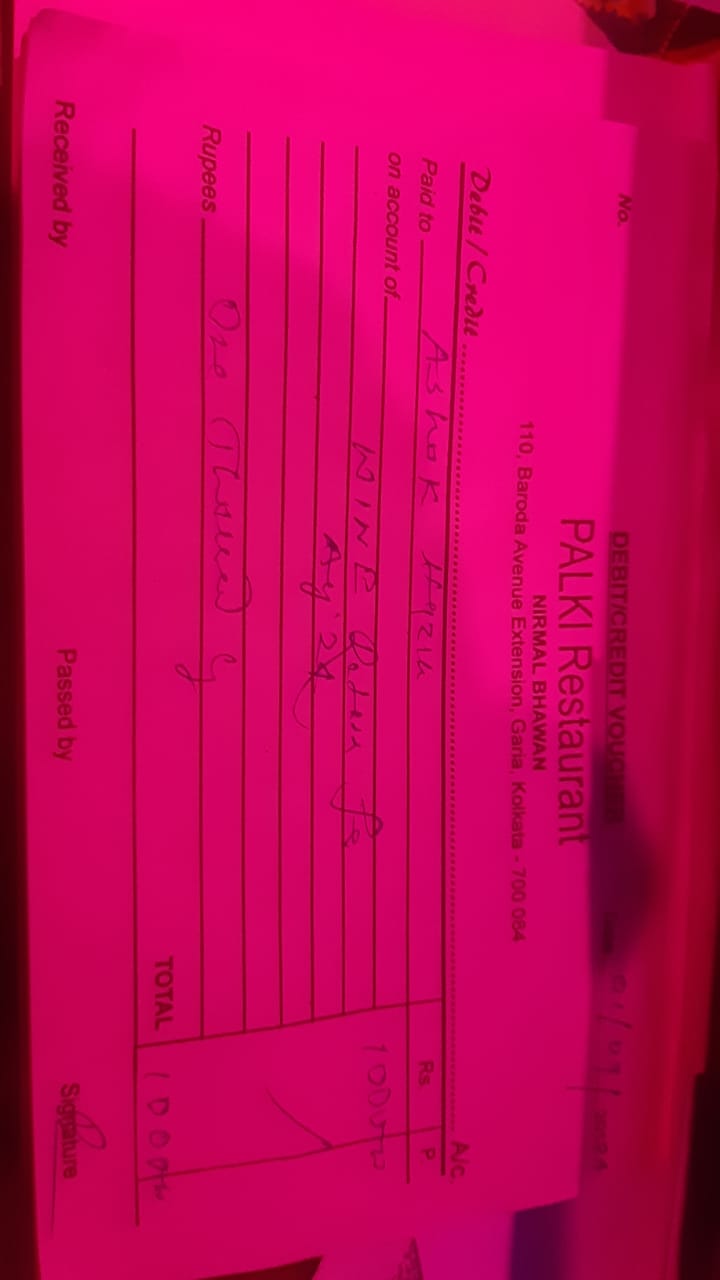 DEBIT/CREDIT VOUCHER
PALKI Restaurant
NIRMAL BHAWAN
110, Baroda Avenue Extension, Garia, Kolkata - 700 084
No.
Debit / Credit A/c.
Paid to ASHOK Rs. P.
on account of
WINE 1000
Aug'24
Rupees One Thousand
TOTAL 1000
Received by Passed by Signature